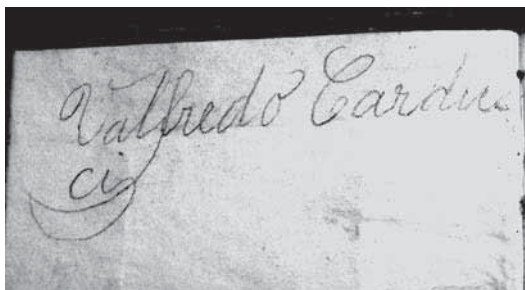 Valfredo Cardu
ci